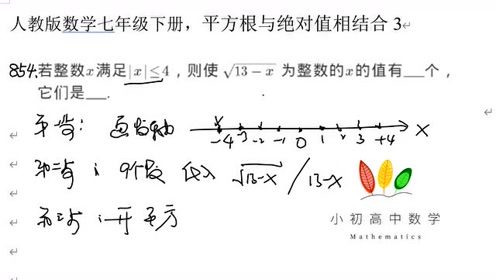 人教版数学七年级下册，平方根与绝对值相结合 3
854.若整数x满足|x|≤4，则使 √13-x 为整数的x的值有___个，
它们是___.
第一步：画数轴 -4 -3 -2 -1 0 1 2 3 +4 X
第二步： 9个数 代入 √13-X / 13-X
第三步：开平方
小初高中数学
Mathematics